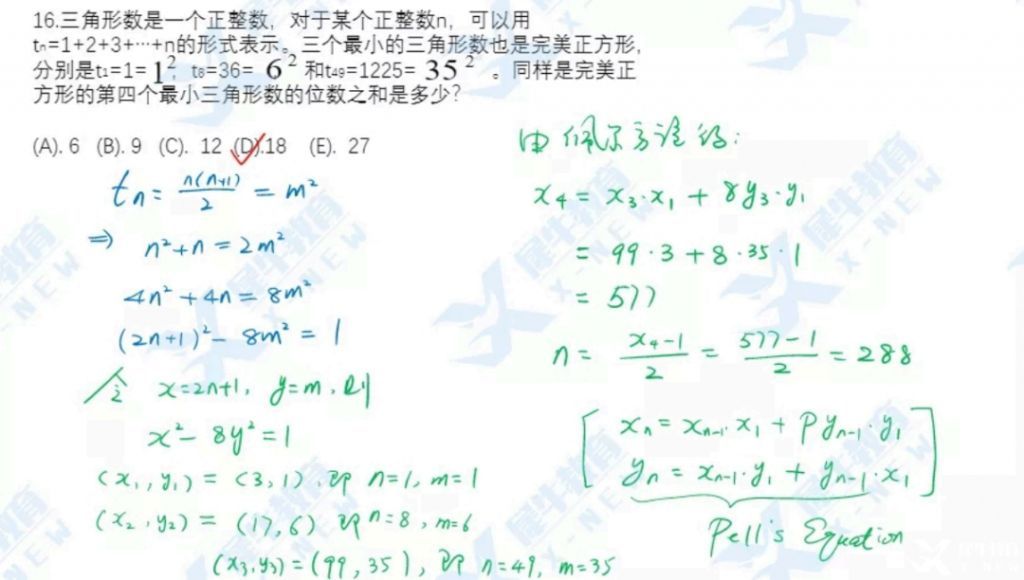 16.三角形数是一个正整数，对于某个正整数n，可以用
tₙ=1+2+3+···+n的形式表示。三个最小的三角形数也是完美正方形，
分别是t₁=1=1²；t₈=36=6²和t₄₉=1225=35²。同样是完美正
方形的第四个最小三角形数的位数之和是多少？
(A). 6 (B). 9 (C). 12 (D).18 (E). 27
tₙ= n(n+1)/2 = m²
⇒ n²+n = 2m²
4n²+4n = 8m²
(2n+1)²- 8m² = 1
令 x=2n+1, y=m, 则
x²- 8y² = 1
(x₁,y₁) = (3,1), 即 n=1, m=1
(x₂,y₂) = (17,6) 即 n=8, m=6
(x₃,y₃)=(99,35), 即 n=49, m=35
由佩尔方程得:
x₄ = x₃·x₁ + 8y₃·y₁
= 99·3 + 8·35·1
= 577
n = (x₄-1)/2 = (577-1)/2 = 288
xₙ = xₙ₋₁·x₁ + Pyₙ₋₁·y₁
yₙ = xₙ₋₁·y₁ + yₙ₋₁·x₁
Pell's Equation
犀牛教育
X-NEW